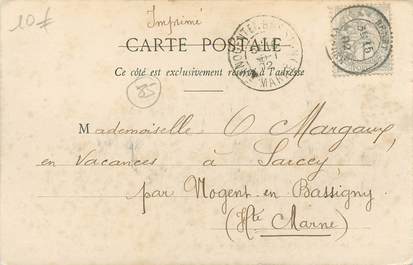 10 F
Imprimé
CARTE POSTALE
Ce côté est exclusivement réservé à l'adresse
Mademoiselle O Margaux
en Vacances à Sarcey
par Nogent-en-Bassigny
(Hte Marne)